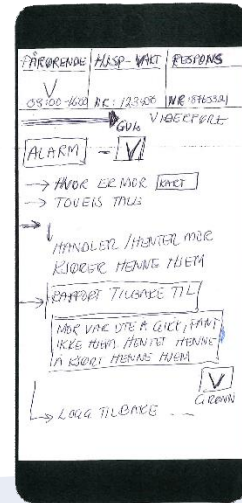 PÅRØRENDE HJ.SP-VAKT RESPONS
V
08:00-1600 NR: 123456 NR 18765321
GUL VIDERFØRT
ALARM - V
→ HVOR ER MOR KART
→ TOVEIS TALE
HANDLER / HENTER MOR
KJØRER HENNE HJEM
→ RAPPORT TILBAKE TIL
MOR VAR UTE Å GIKK, FANT
IKKE HJEM. HENTET HENNE
Å KJØRT HENNE HJEM
V
GRØNN
→ LOGG TILBAKE ...